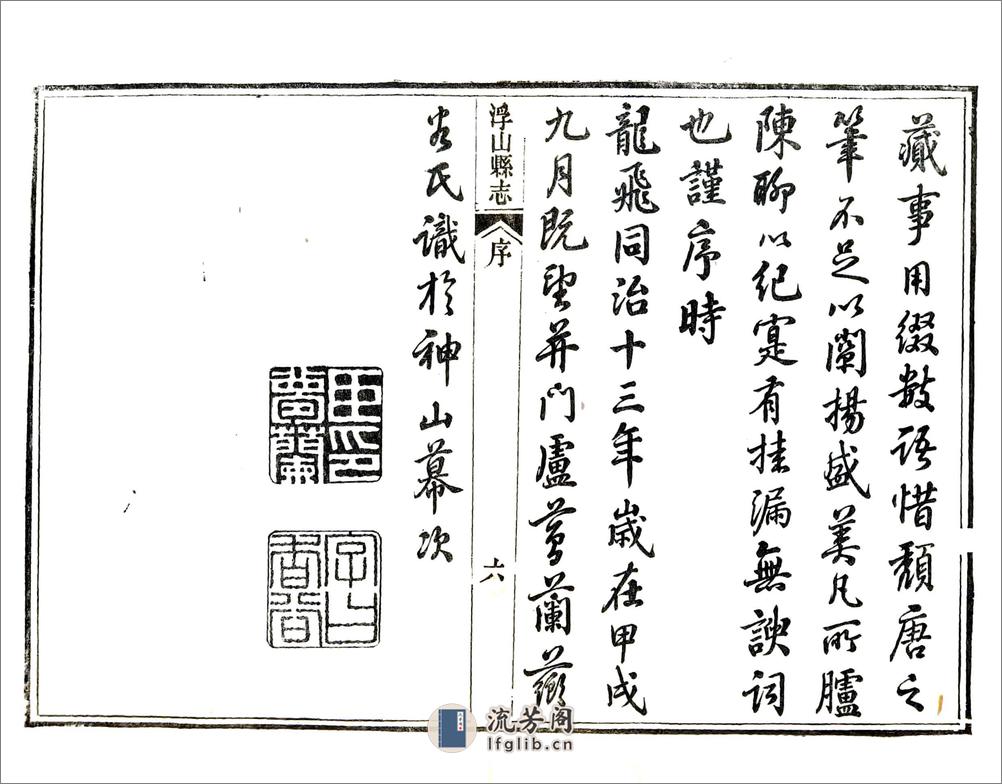 蕆事用綴數語惜頹唐之
筆不足以闡揚盛美凡所臚
陳聊以紀寔有挂漏無諛詞
也謹序時
龍飛同治十三年歲在甲戌
九月既望并門盧蘭薌
浮山縣志
序
六
谷氏識於神山幕次
字曰香谷
流芳阁
lfglib.cn